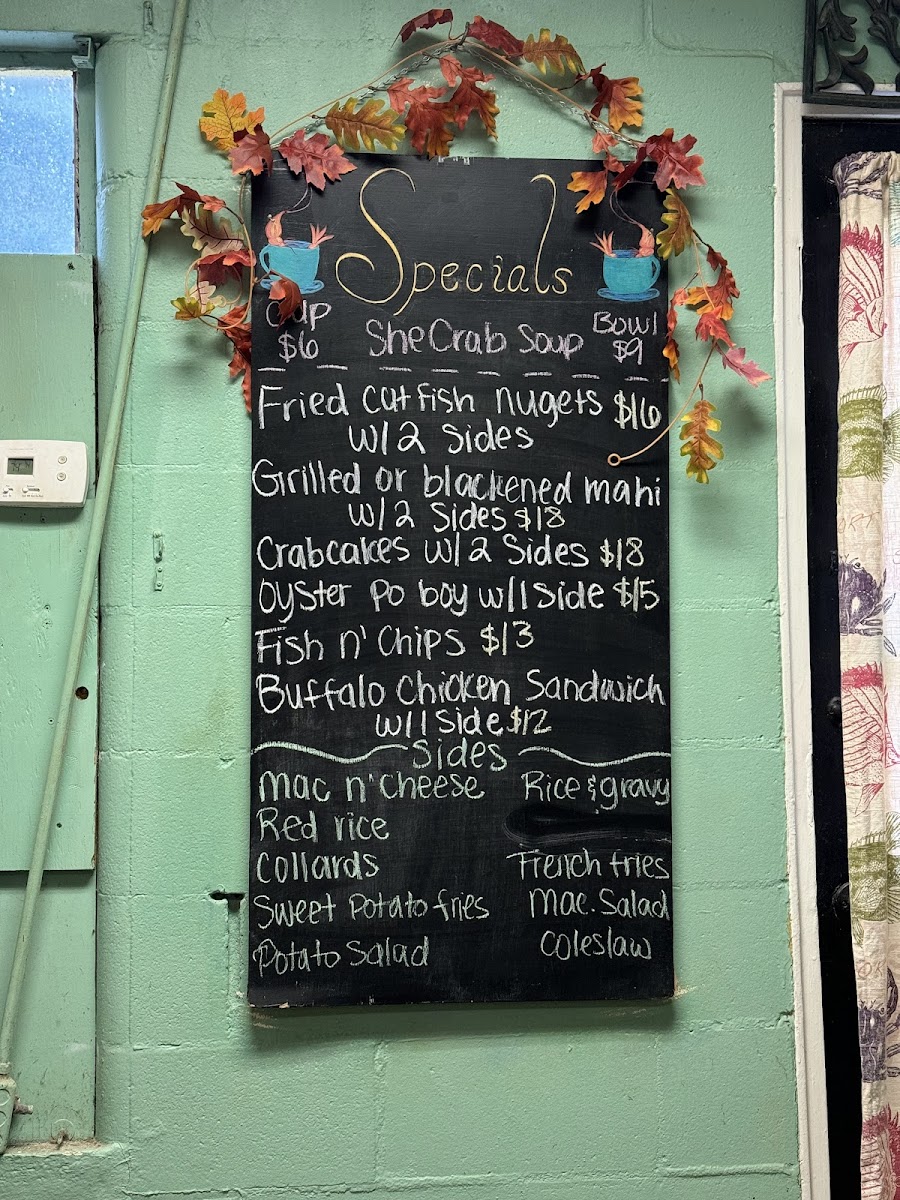 Specials
Cup SheCrab Soup Bowl
$6 $9
Fried catfish nugets $16
w/2 Sides
Grilled or blackened mahi
w/2 Sides $18
Crabcakes w/2 Sides $18
Oyster Po boy w/1 Side $15
Fish n' Chips $13
Buffalo Chicken Sandwich
w/1 Side $12
Sides
Mac n' Cheese Rice & gravy
Red rice
Collards French fries
Sweet Potato fries Mac. Salad
Potato Salad Coleslaw